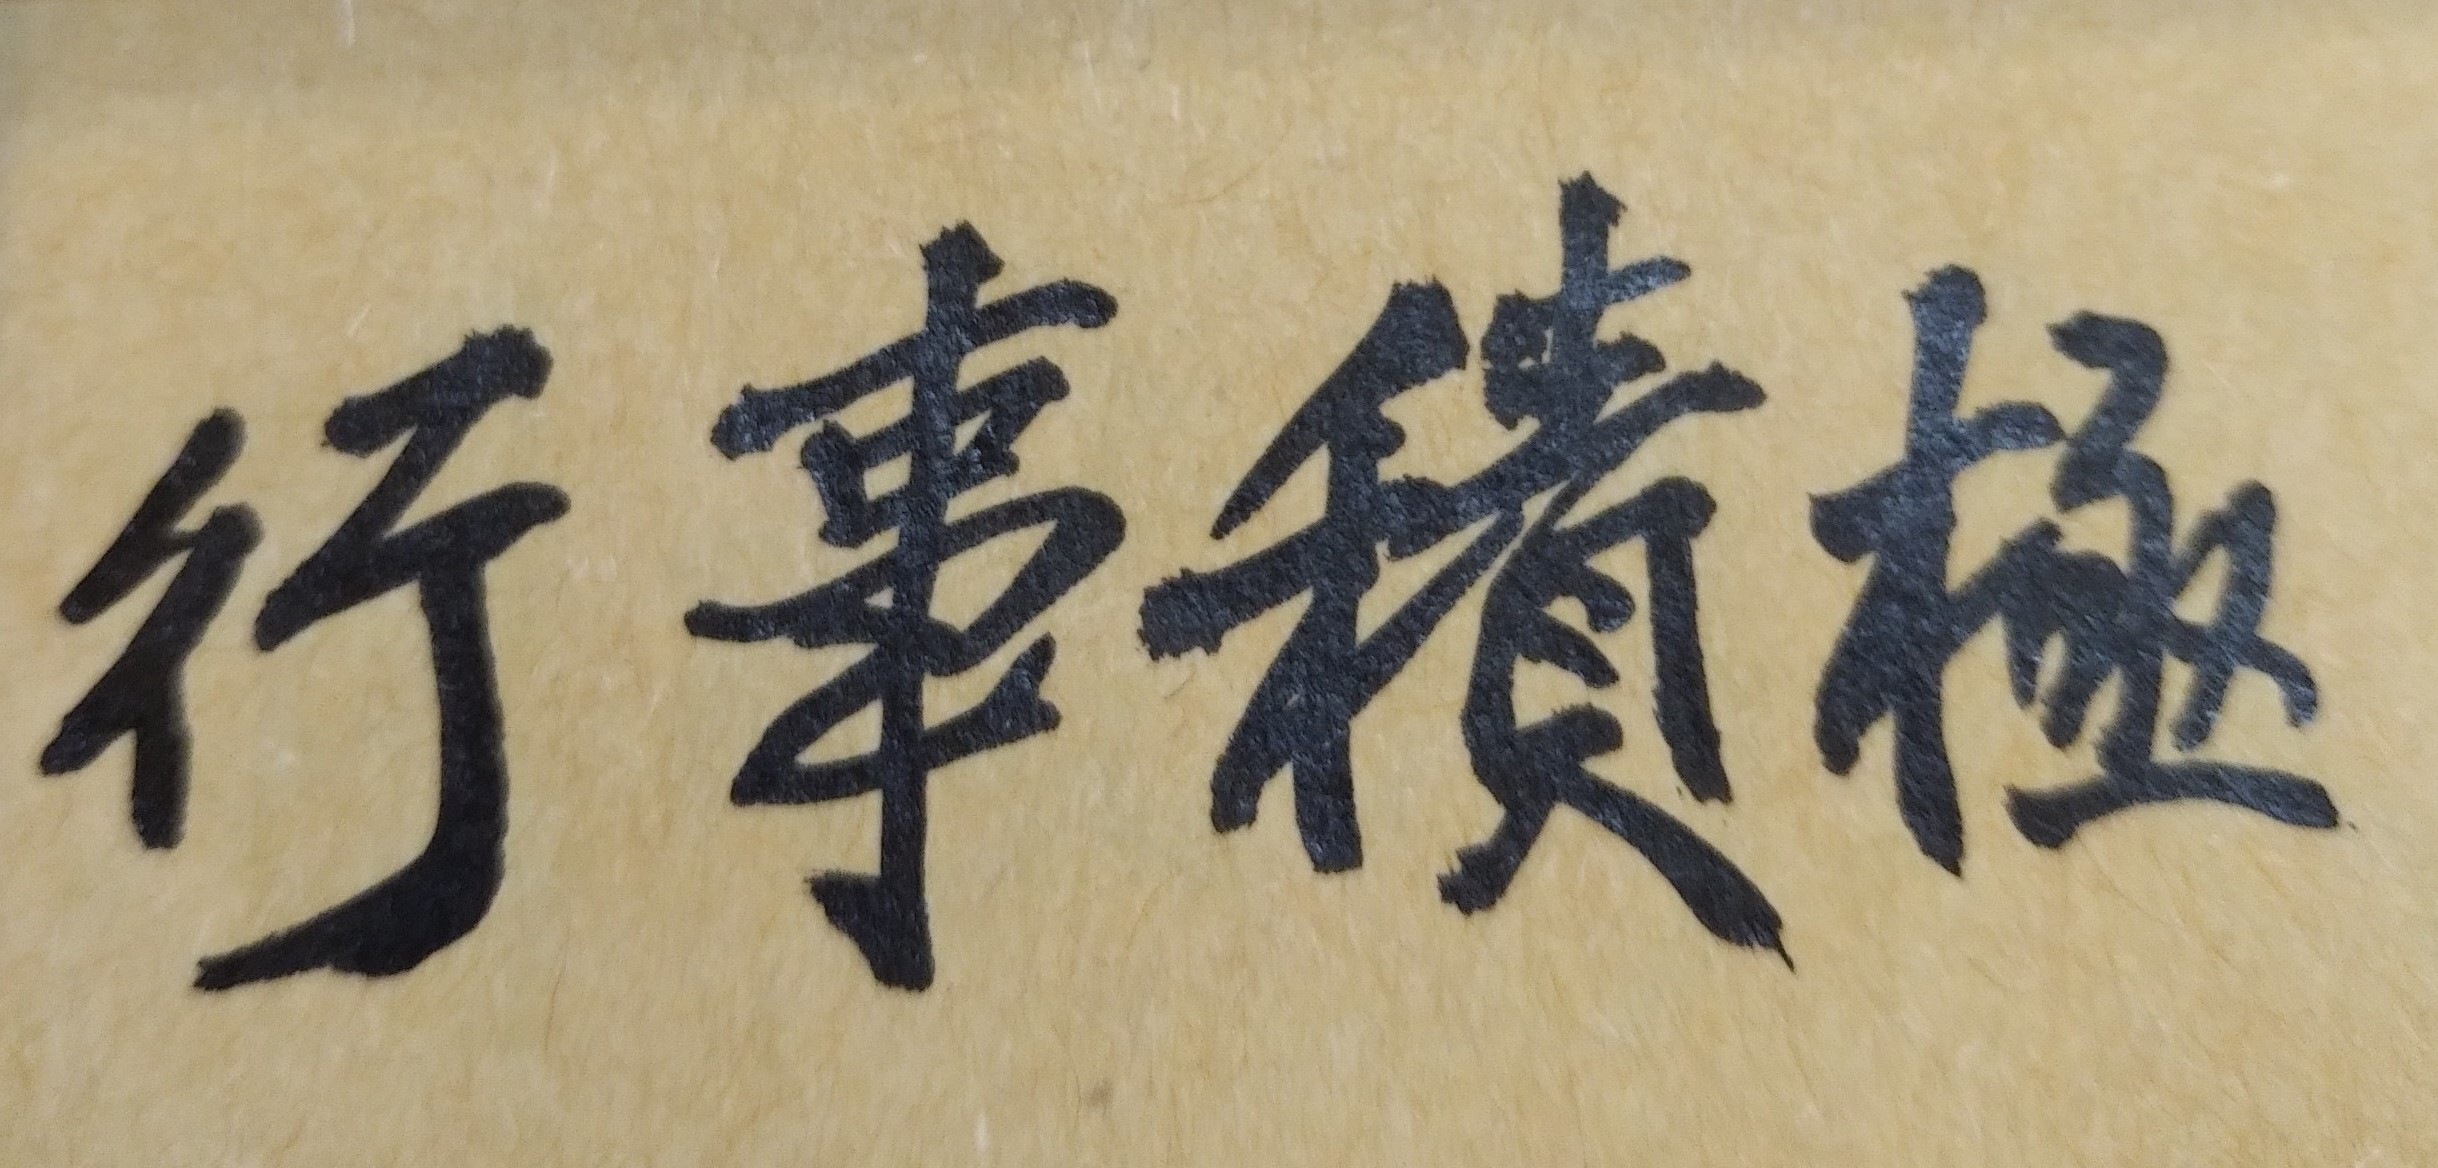 行事積極